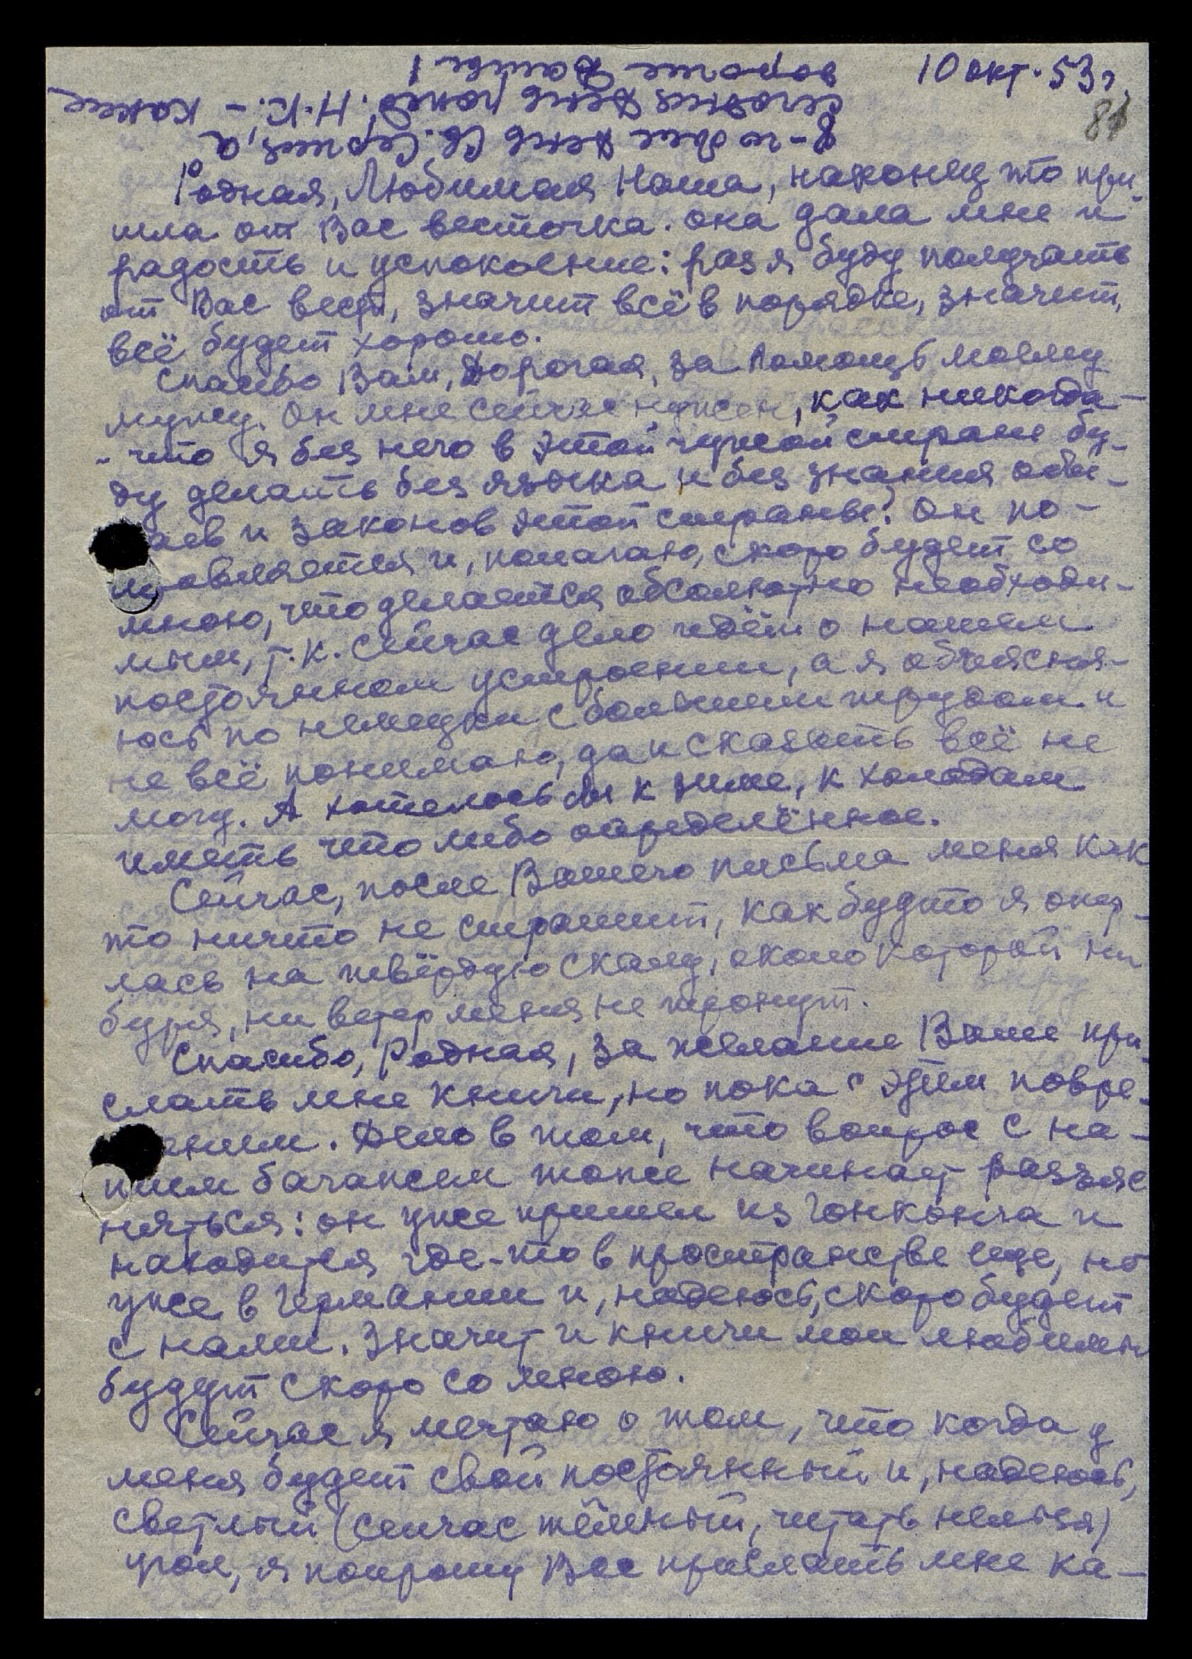 10 окт. 53 г.
81
8-го был день Св. Сергия, а
сегодня день рожд. Н.К. – какие
дорогие Даты!
Родная, Любимая Наша, наконец то при-
шла от Вас весточка. Она дала мне и
радость и успокоение: раз я буду получать
от Вас вести, значит всё в порядке, значит,
всё будет хорошо.
Спасибо Вам, Дорогая, за помощь моему
мужу. Он мне сейчас нужен, как никогда –
– что я без него в этой чужой стране бу-
ду делать без языка и без знания обы-
чаев и законов этой страны? Он по-
правляется и, полагаю, скоро будет со
мною, что делается абсолютно необходи-
мым, т.к. сейчас дело идёт о нашем
постоянном устроении, а я объясня-
юсь по немецки с большим трудом и
не всё понимаю, да и сказать всё не
могу. А хотелось бы к зиме, к холодам
иметь что либо определённое.
Сейчас, после Вашего письма меня как
то ничто не страшит, как будто я опер-
лась на твёрдую скалу, около которой ни
буря, ни ветер меня не тронут.
Спасибо, Родная, за желание Ваше при-
слать мне книги, но пока с этим повре-
меним. Дело в том, что вопрос с на-
шим багажем тоже начинает разъяс
няться: он уже пришел из Гонконга и
находится где-то в пространстве еще, но
уже в Германии и, надеюсь, скоро будет
с нами. Значит и книги мои любимые
будут скоро со мною.
Сейчас я мечтаю о том, что когда у
меня будет свой постоянный и, надеюсь,
светлый (сейчас тёмный, читать нельзя)
угол, я попрошу Вас прислать мне ка-